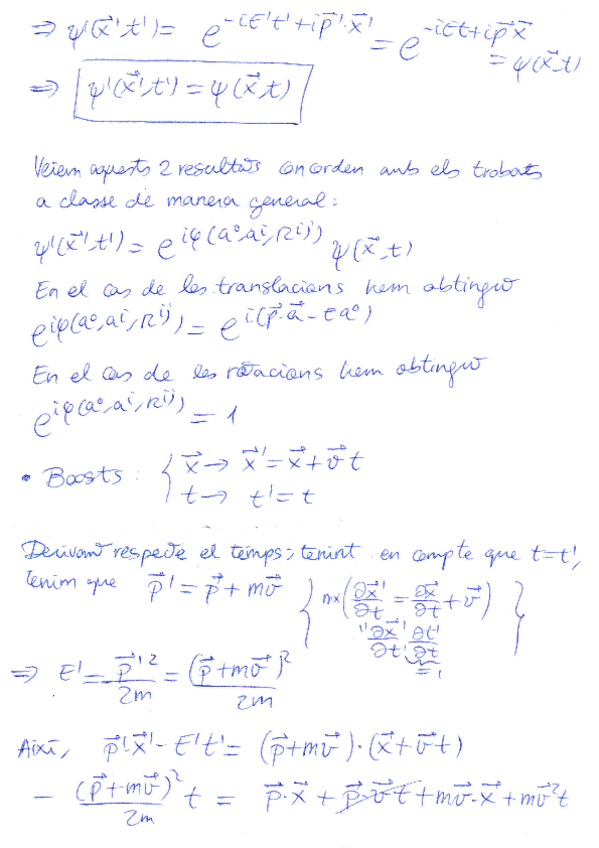 ⇒ ψ'(x⃗',t') = e^{-iE't'+ip⃗'·x⃗'} = e^{-iEt+ip⃗x⃗} = ψ(x⃗,t)
⇒ ψ'(x⃗',t') = ψ(x⃗,t)
Veiem aquests 2 resultats concorden amb els trobats
a classe de manera general:
ψ'(x⃗',t') = e^{iφ(a⁰,aⁱ,R^{ij})} ψ(x⃗,t)
En el cas de les translacions hem obtingut
e^{iφ(a⁰,aⁱ,R^{ij})} = e^{i(p⃗·a⃗-Ea⁰)}
En el cas de les rotacions hem obtingut
e^{iφ(a⁰,aⁱ,R^{ij})} = 1
• Boosts: { x⃗ → x⃗' = x⃗ + v⃗t
t → t' = t
Derivant respecte el temps, tenint en compte que t=t',
tenim que p⃗' = p⃗ + mv⃗ { mx(∂x⃗'/∂t = ∂x⃗/∂t + v⃗) }
" ∂x⃗'/∂t' ∂t'/∂t
=1
⇒ E' = p⃗'²/2m = (p⃗+mv⃗)²/2m
Així, p⃗'x⃗' - E't' = (p⃗+mv⃗)·(x⃗+v⃗t)
- (p⃗+mv⃗)²/2m t = p⃗·x⃗ + p⃗·v⃗t + mv⃗·x⃗ + mv⃗²t